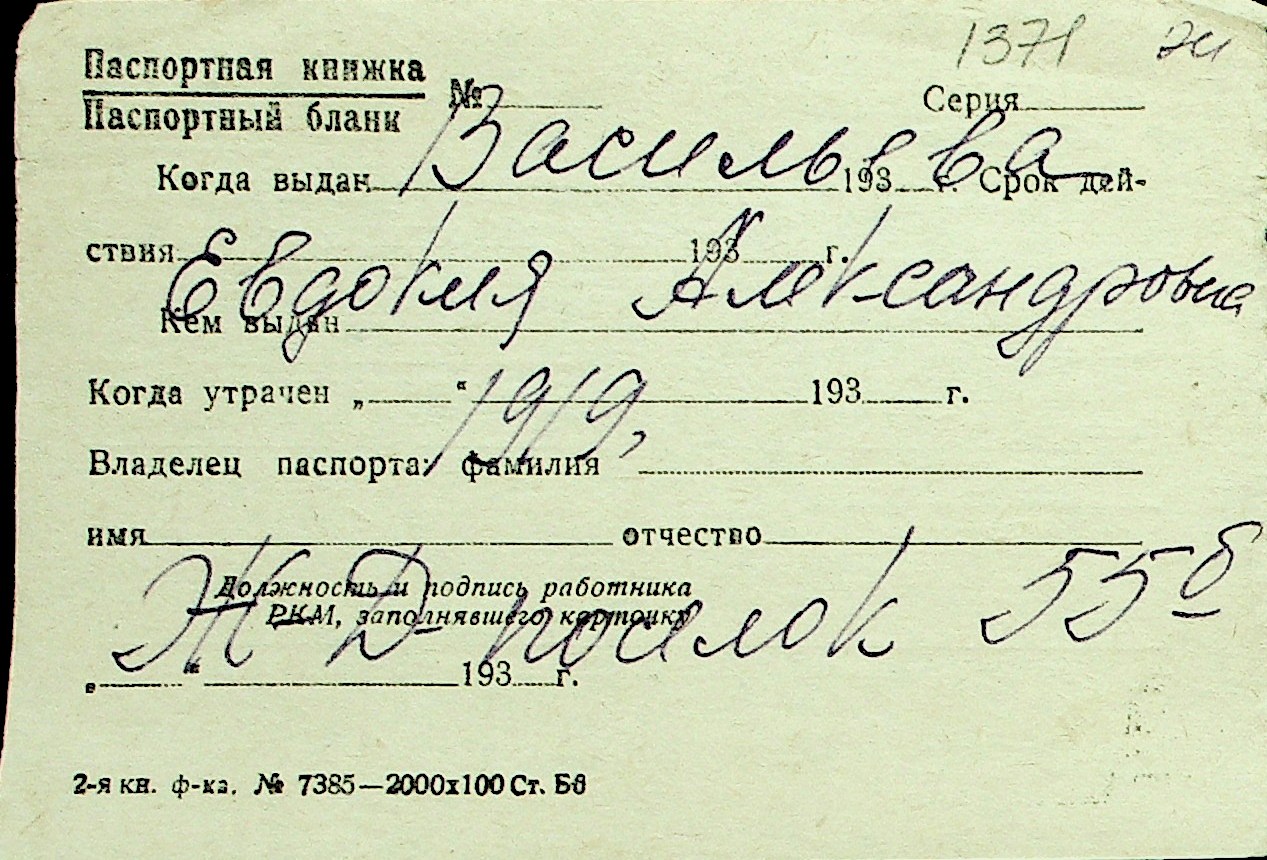 1371 жи
Паспортная книжка
Паспортный бланк
№ Серия
Васильева
Когда выдан 193 г. Срок дей-
ствия 193 г.
Евдокия Александровна
Кем выдан
Когда утрачен „ “ 193 г.
1919,
Владелец паспорта: фамилия
имя отчество
Должность и подпись работника
РКМ, заполнявшего карточку
Ж Д поселок 55 б
„ “ 193 г.
2-я кн. ф-ка. № 7385—2000х100 Ст. Бд